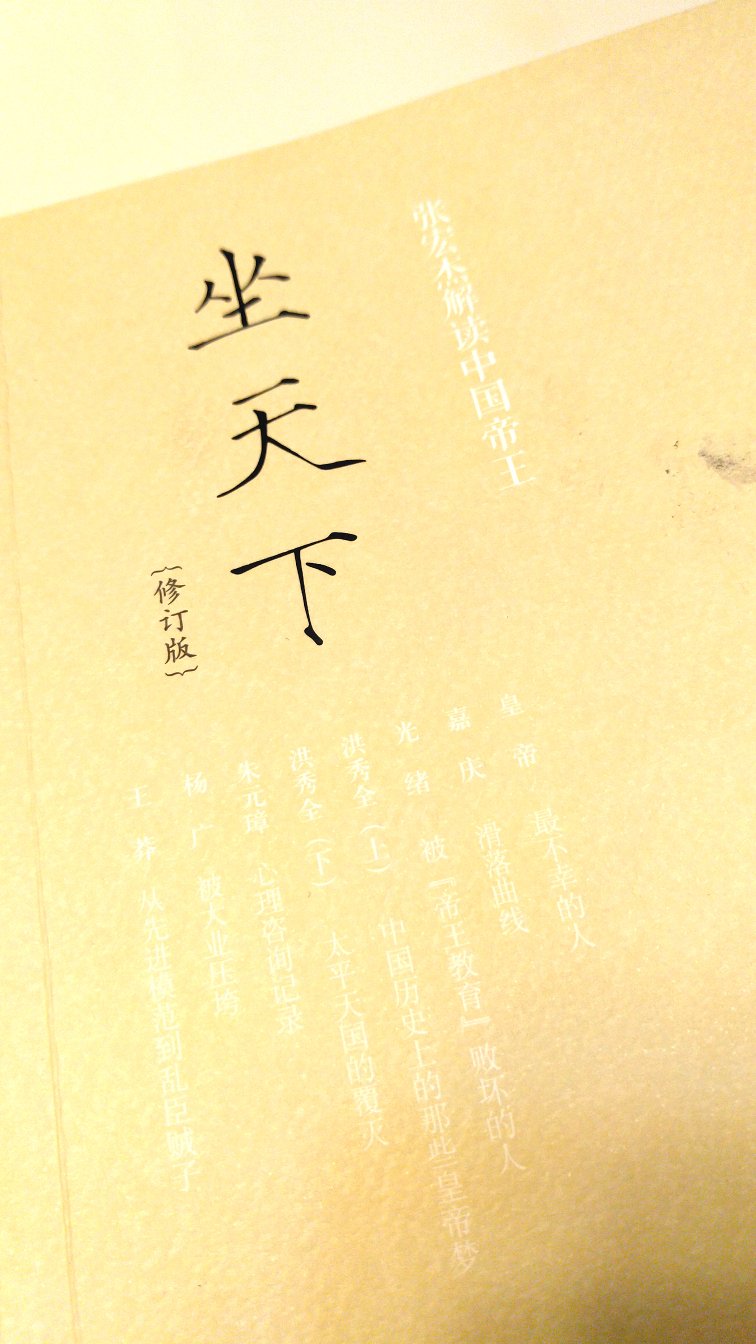 张宏杰解读中国帝王
坐天下
{修订版}
皇帝 最不幸的人
嘉庆 滑落曲线
光绪 被“帝王教育”败坏的人
洪秀全(上) 中国历史上的那些皇帝梦
洪秀全(下) 太平天国的覆灭
朱元璋 心理咨询记录
杨广 被大业压垮
王莽 从先进模范到乱臣贼子